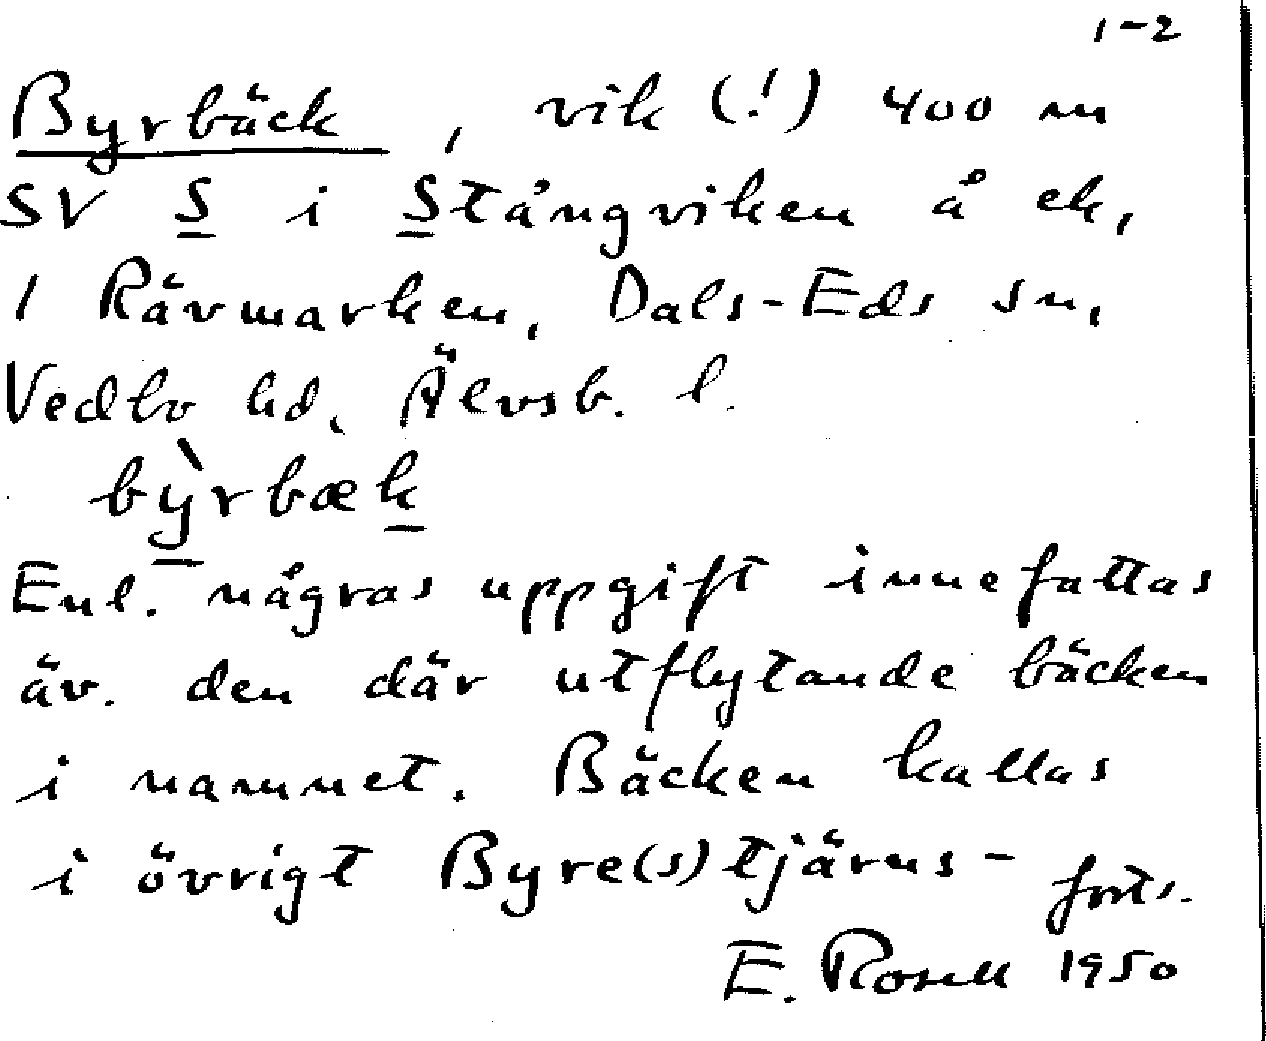 1-2
Byrbäck, vik (!) 400 m
SV S i Stångviken å ek,
1 Rävmarken, Dals-Eds sn,
Vedbo hd, Älvsb. l.
bỳ̱rbæḵ
Enl. någras uppgift innefattas
äv. den där utflytande bäcken
i namnet. Bäcken kallas
i övrigt Byre(s)tjärns- forts.
E. Rosell 1950